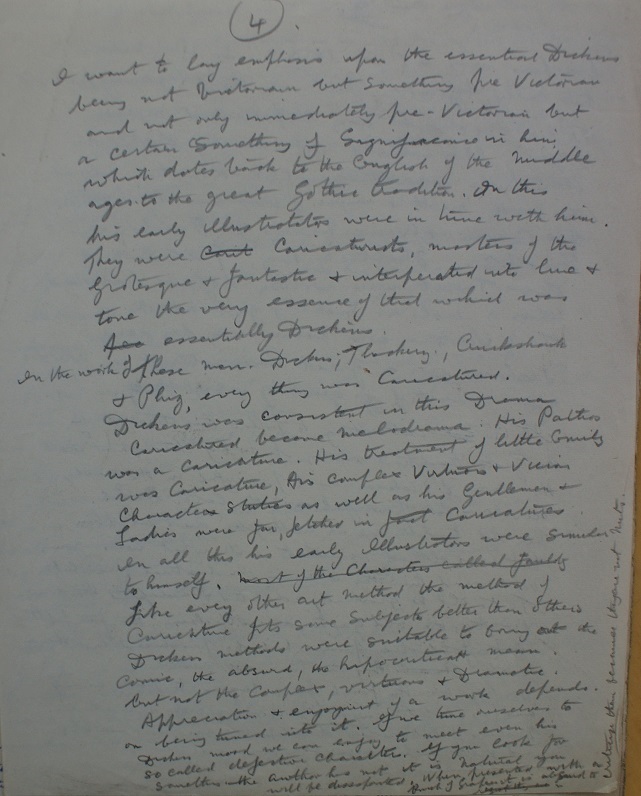 4
I want to lay emphasis upon the essential Dickens
being not Victorian but something pre Victorian
and not only immediately pre-Victorian but
a certain something of Significance in him
which dates back to the English of the Middle
ages to the great Gothic tradition. In this
his early illustrators were in tune with him.
They were Caricaturists, masters of the
Grotesque & fantastic & interpreted into line &
tone the very essence of that which was
essentially Dickens.
In the work of these men. Dickens, Thackery, Cruickshank
& Phiz, every thing was Caricatured.
Dickens was consistent in this Drama
Caricatured became melodrama. His Pathos
was a Caricature. His treatment of little Emily
was Caricature, his complex Virtuous & Vicious
Character Studies as well as his Gentlemen &
Ladies were far fetched in fact Caricatures
In all this his early Illustrators were similar
to himself. most of the Characters called
Like every other art method the method of
Caricature fits some Subjects better than others
Dickens methods were suitable to bring out the
Comic, the absurd, the hypocritical mean.
but not the Complex, virtuous & Dramatic.
Appreciation & enjoyment of a work depends.
on being tuned into it. If we tune ourselves to
Dickens mood we can enjoy to meet even his
so called defective Characters. If you look for
something the author has not it is natural you
will be disappointed. When presented with a
bunch of is absurd to
because they are not Nuts.